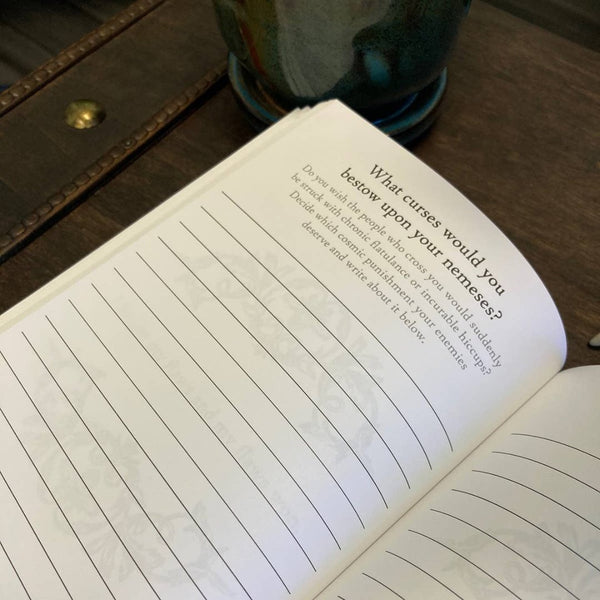 What curses would you
bestow upon your nemeses?
Do you wish the people who cross you would suddenly
be struck with chronic flatulance or incurable hiccups?
Decide which cosmic punishment your enemies
deserve and write about it below.